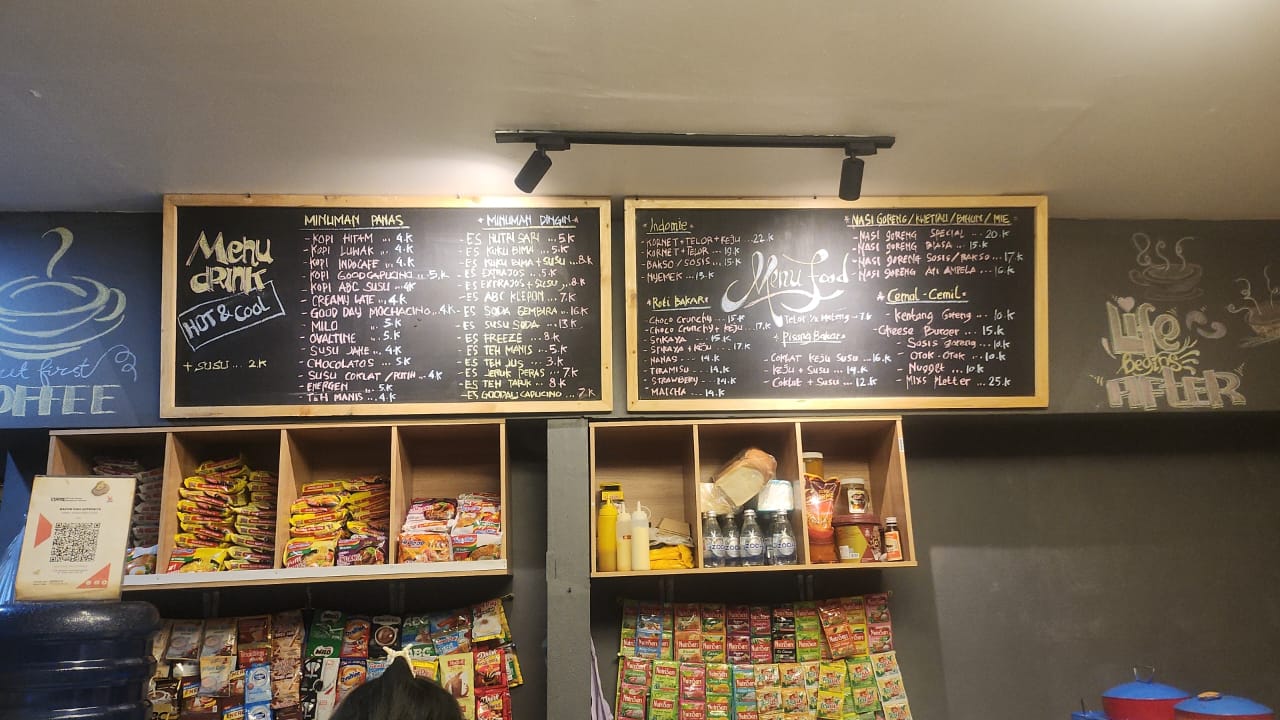 Menu drink
HOT & COOL
+ SUSU ... 2.K
MINUMAN PANAS
- KOPI HITAM ... 4.K
- KOPI LUWAK ... 4.K
- KOPI INDOCAFE ... 4.K
- KOPI GOODCAPUCINO ... 5.K
- KOPI ABC SUSU ... 4K
- CREAMY LATE ... 4.K
- GOOD DAY MOCHACINO ... 4.K
- MILO ... 5.K
- OVALTINE ... 5.K
- SUSU JAHE ... 4.K
- CHOCOLATOS ... 5K
- SUSU COKLAT / PUTIH ... 4.K
- ENERGEN ... 5.K
- TEH MANIS ... 4.K
MINUMAN DINGIN
- ES NUTRI SARI ... 5.K
- ES KUKU BIMA ... 5.K
- ES KUKU BIMA + SUSU ... 8.K
- ES EXTRAJOS ... 5.K
- ES EXTRAJOS + SUSU ... 8.K
- ES ABC KLEPON ... 7.K
- ES SODA GEMBIRA ... 16K
- ES SUSU SODA ... 13.K
- ES FREEZE ... 8.K
- ES TEH MANIS ... 5.K
- ES TEH JUS ... 3.K
- ES JERUK PERAS ... 7.K
- ES TEH TARIK ... 8.K
- ES GOODAY CAPUCINO ... 7.K
Menu Food
Indomie
- KORNET + TELOR + KEJU ... 22.K
- KORNET + TELOR ... 19.K
- BAKSO / SOSIS ... 15.K
- NYEMEK ... 15.K
Roti Bakar
- Choco Crunchy ... 15.K
- Choco Crunchy + KEJU ... 17.K
- SRIKAYA ... 15.K
- SRIKAYA + KEJU ... 17.K
- NANAS ... 14.K
- TIRAMISU ... 14.K
- STRAWBERY ... 14.K
- MATCHA ... 14.K
Pisang Bakar
- COKLAT KEJU SUSU ... 16.K
- KEJU + SUSU ... 14.K
- Coklat + SUSU ... 12.K
NASI GORENG / KWETIAU / BIHUN / MIE
- NASI GORENG SPECIAL ... 20.K
- NASI GORENG BIASA ... 15.K
- NASI GORENG SOSIS / BAKSO ... 17.K
- NASI GORENG ATI AMPELA ... 16.K
Cemal - Cemil
- Kentang Goreng ... 10.K
- Cheese Burger ... 15.K
- Sosis Goreng ... 10.K
- OTOK - OTOK ... 10.K
- Nugget ... 10.K
- Mixs Pletter ... 25.K
but first
COFFEE
Life
Begins
AFTER